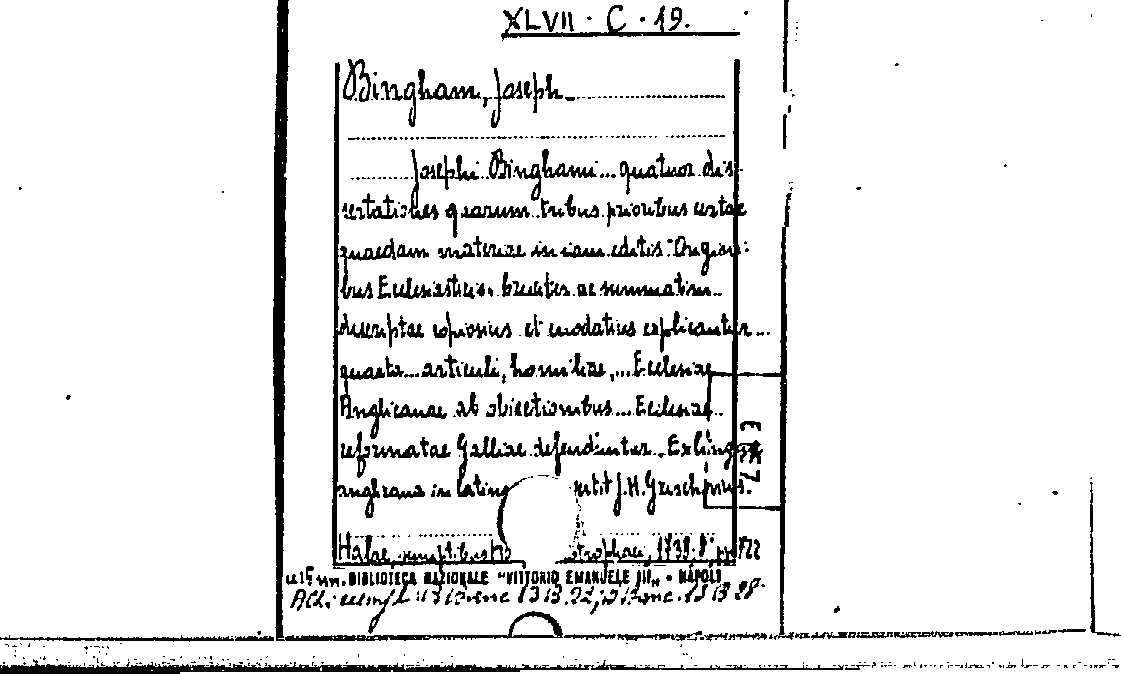 XLVII · C · 19.
Bingham, Joseph
Josephi Binghami... quatuor dis-
sertationes quarum tribus prioribus certae
quaedam materiae in iam editis "Origini-
bus Ecclesiasticis" breviter ac summatim
descriptae copiosius et enodatius explicantur...
quarta... articuli, homiliae,... Ecclesiae
Anglicanae ab obiectionibus... Ecclesiae
reformatae Galliae defenduntur. Ex lingua
anglicana in latinam J.H. Grischovius.
Halae, sumptibus 1738. 8°, pp.
BIBLIOTECA NAZIONALE "VITTORIO EMANUELE III" - NAPOLI